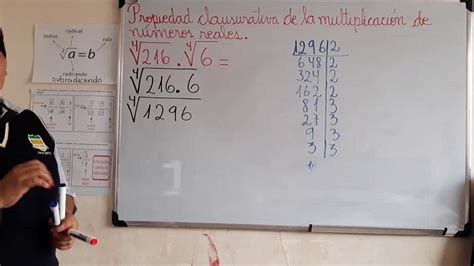 Propiedad clausurativa de la multiplicación de
números reales.
⁴√216 . ⁴√6 =
⁴√216.6
⁴√1296
1296|2
648|2
324|2
162|2
81|3
27|3
9|3
3|3
1
índice
raíz
ⁿ√a = b
radicando
subradicando